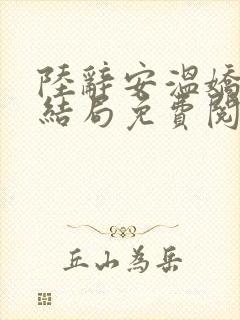 陸辭安溫嬌
結局免費閱
丘山為岳